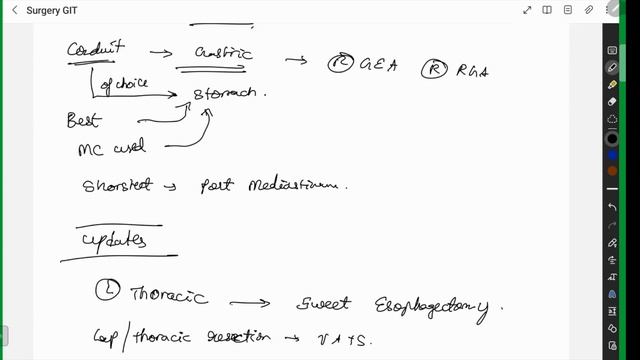 Surgery GIT
Conduit → Gastric → Ⓡ GEA Ⓡ RGA
of choice → Stomach.
Best
MC used
Shorstest → Post Mediastinum.
updates
Ⓛ Thoracic → Sweet Esophagectomy.
Lap/thoracic resection → VATS.